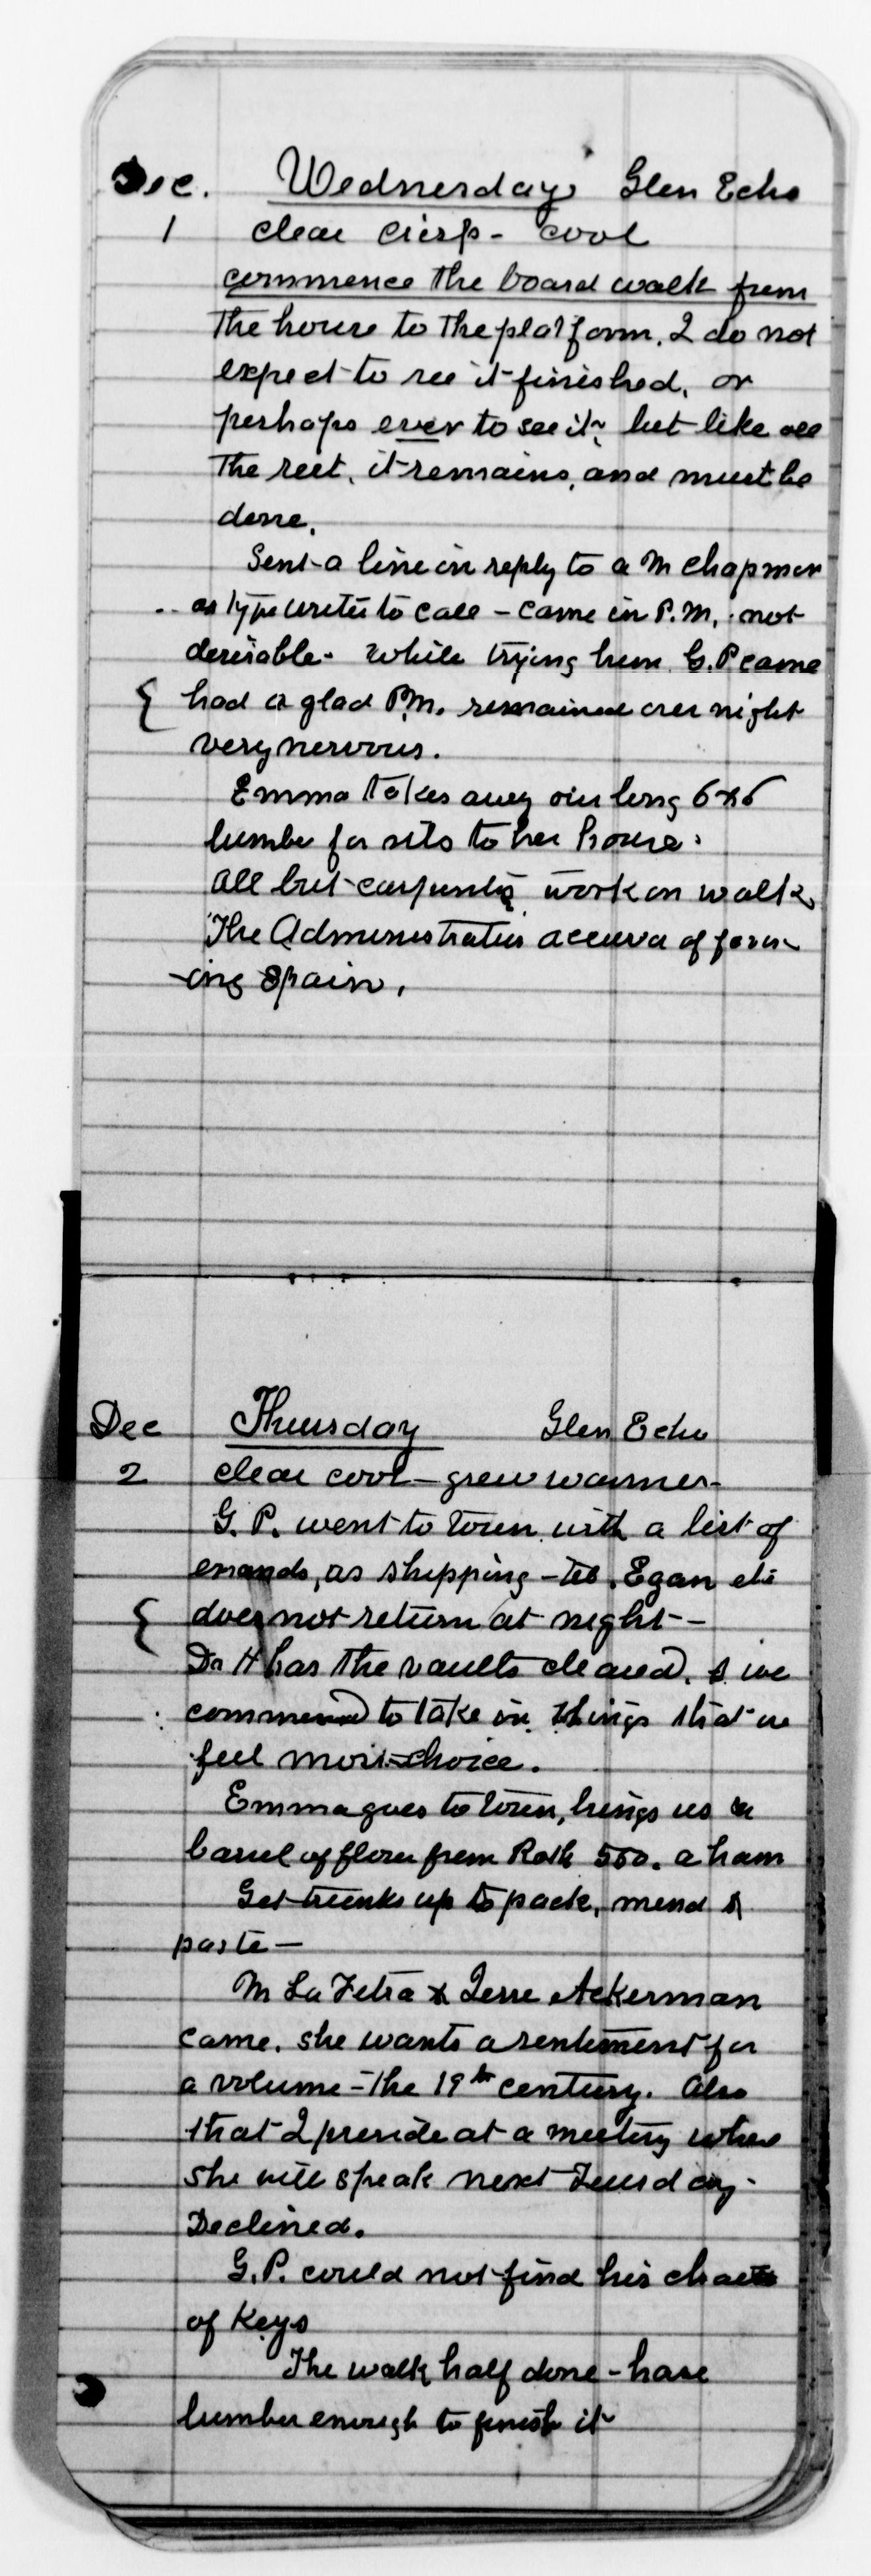 Dec. Wednesday Glen Echo
1 clear crisp - cool
commence the board walk from
the house to the platform. I do not
expect to see it finished, or
perhaps ever to see it, but like all
the rest, it remains, and must be
done.
Sent a line in reply to a M Chapman
as typewriter to call - came in P.M. not
desirable - while trying him G.P came
had a glad P.M. remained over night
very nervous.
Emma takes away our long 6x6
lumber for sils to her house.
All but carpenters work on walk,
The Administration of
Spain.
Dec Thursday Glen Echo
2 clear cool - grew warmer -
G. P. went to town with a list of
errands, as shipping - Egan etc
does not return at night -
Dr H has the vaults cleared, & we
commenced to take in things that we
feel most choice.
Emma goes to town, brings us a
barrel of flour from Roth 550. a ham
Get trunks up to pack, mend &
paste -
M La Fetra & Jesse Ackerman
came. she wants a sentiment for
a volume - the 19th century. Also
that I preside at a meeting where
she will speak next Tuesday -
Declined.
G.P. could not find his chain
of Keys
The walk half done - have
lumber enough to finish it